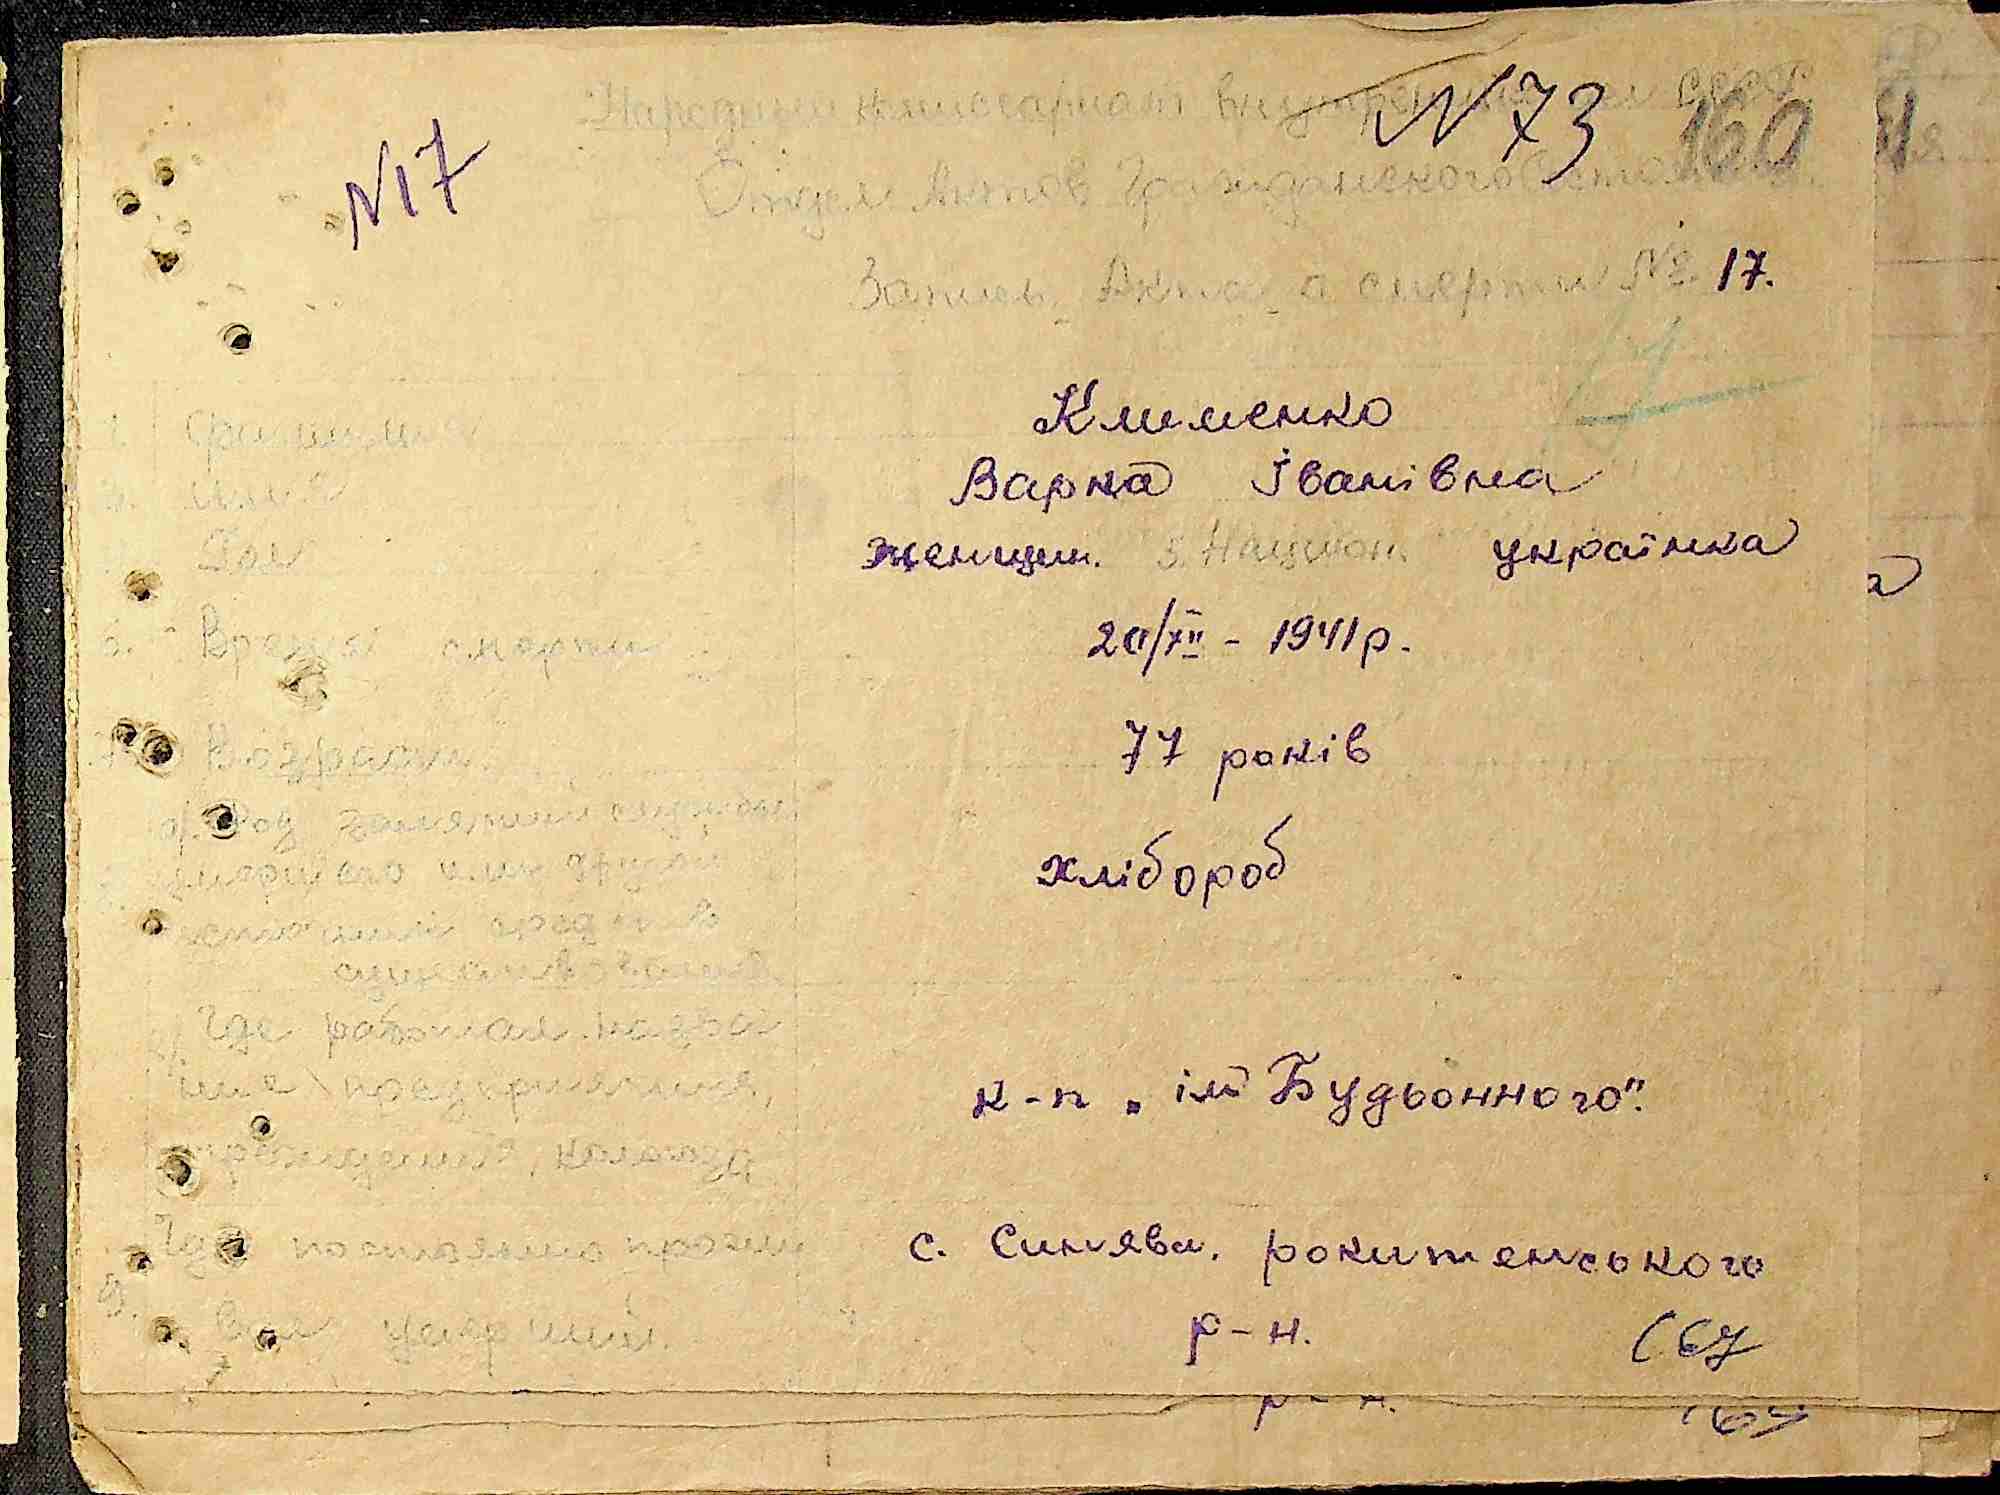 №73
160
№17
Народный комиссариат Внутренних дел СССР
Отдел Актов Гражданского Состояния.
Запись Акта о смерти № 17.
1. Фамилия Клименко
2. Имя Варка Іванівна
Пол женщин. 5. Национ. українка
6. Время смерти 20/XII - 1941р.
7. Возраст 77 років
а/. Род занятий хлібороб
умершего или другой
источник средств
существования
Где работал
предприятия, к-п „ім Будьонного".
учреждения, колхоза
Где постоянно прожи с. Синява. рокитянського
9. вал умерший. р-н. (67
р-н.